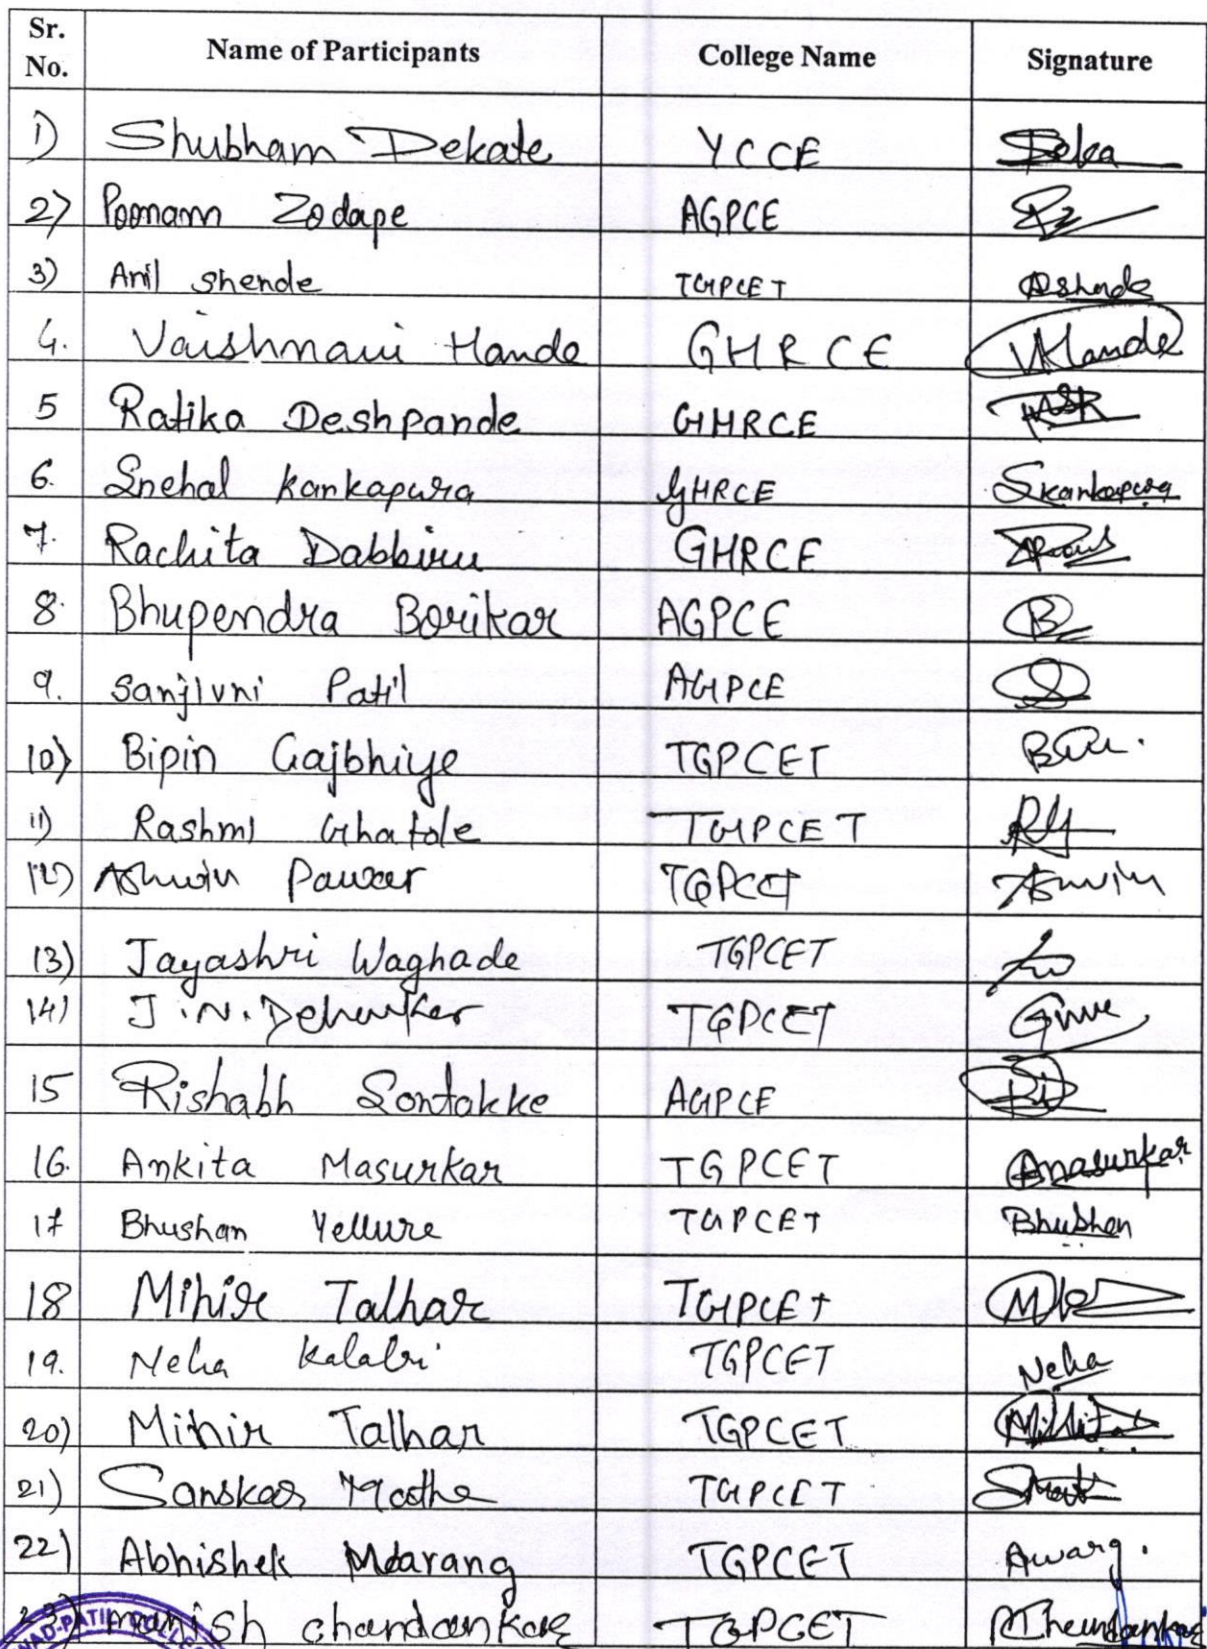 Sr. No. Name of Participants College Name Signature
1) Shubham Dekate YCCE
2) Poonam Zodape AGPCE
3) Anil Shende TGPCET AShende
4. Vaishnavi Hande GHRCE VHande
5 Ratika Deshpande GHRCE
6. Snehal Kankapura GHRCE Skankapura
7. Rachita Dabbiru GHRCE
8. Bhupendra Borikar AGPCE B
9. Sanjivni Patil AGPCE
10) Bipin Gajbhiye TGPCET
11) Rashmi Ghatole TGPCET RG
12) Ashwin Pawar TGPCET Ashwin
13) Jayashri Waghade TGPCET
14) J.N. TGPCET
15 Rishabh Sontakke AGPCE
16. Ankita Masurkar TGPCET Amasurkar
17 Bhushan Yellure TGPCET Bhushan
18 Mihir Talhar TGPCET
19. Neha Kalabri TGPCET Neha
20) Mihir Talhar TGPCET
21) Sanskar TGPCET
22) Abhishek TGPCET
23) manish chandankar TGPCET